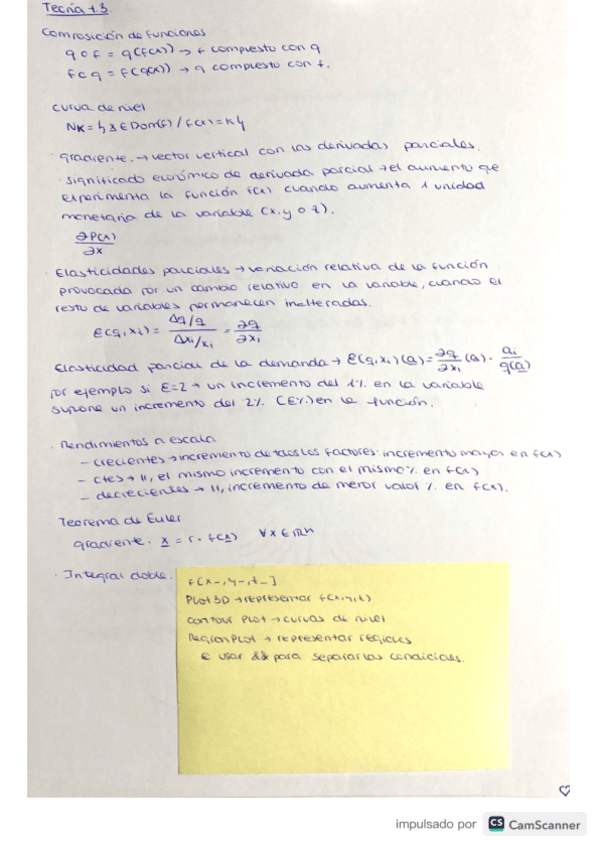 Tecría 1.3.
Composición de funciones
g o f = g(f(x)) → f compuesto con g
f o g = f(g(x)) → g compuesto con f.
Curva de nivel
Nk = { x ∈ Dom(f) / f(x) = k }
· gradiente. → vector vertical con las derivadas parciales.
· significado económico de derivada parcial → el aumento que
experimenta la función f(x) cuando aumenta 1 unidad
monetaria de la variable (x, y o z).
∂P(x)
∂x
· Elasticidades parciales → variación relativa de la función
provocada por un cambio relativo en la variable, cuando el
resto de variables permanecen inalteradas.
E(q, xi) = Δq/q / Δxi/xi = ∂q / ∂xi
Elasticidad parcial de la demanda → E(q, xi)(a) = ∂q / ∂xi (a) · ai / q(a)
por ejemplo si E=2 → un incremento del 1% en la variable
supone un incremento del 2% (E%) en la función.
· Rendimientos a escala
– crecientes → incremento de todos los factores: incremento mayor en f(x)
– ctes → 11, el mismo incremento con el mismo % en f(x)
– decrecientes → 11, incremento de menor valor % en f(x).
Teorema de Euler
gradiente · x = r · f(x) ∀x ∈ ℝn
· Integral doble.
f[x_, y_, z_]
Plot3D → representar f(x,y,z)
Contour Plot → curvas de nivel
RegionPlot → representar regiones
e usar && para separar las condiciones.
impulsado por CS CamScanner